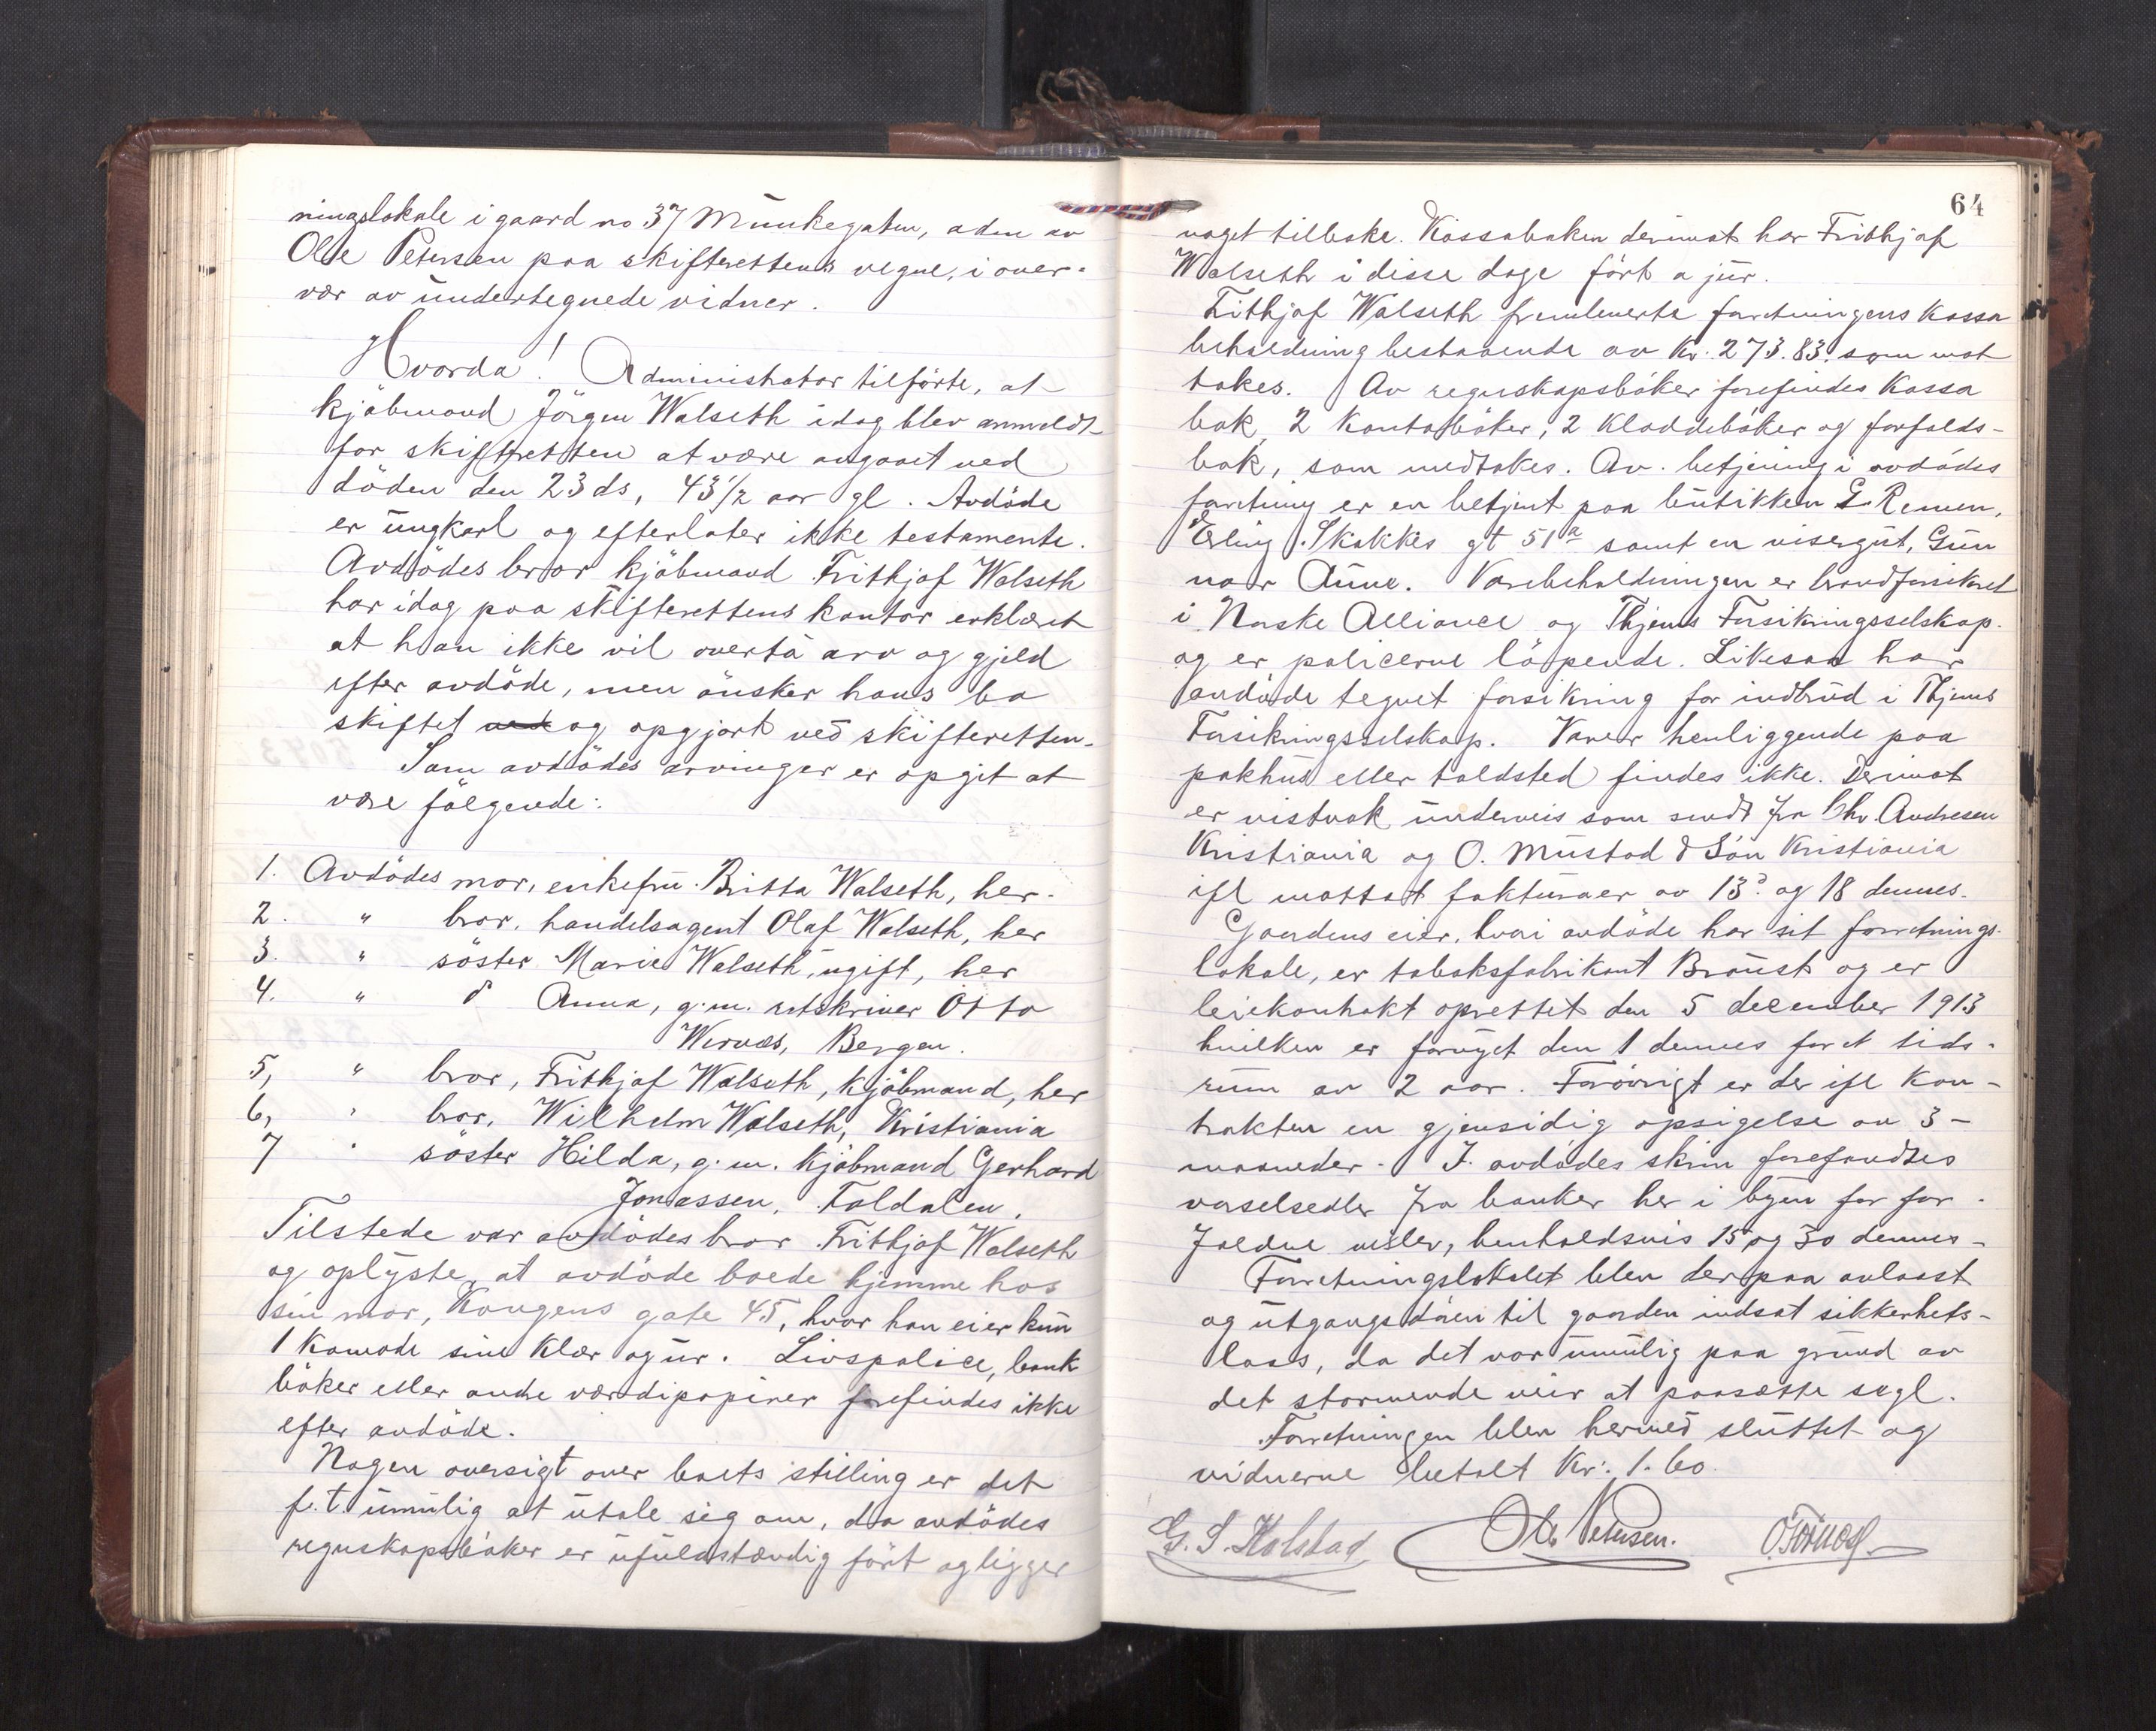 ningslokale i gaard no 37 Munkegaten, adm av
Ole Petersen paa skifterettens vegne, i over-
vær av undertegnede vidner.
Hvorda! Administrator tilförte, at
kjöbmand Jörgen Walseth idag blev anmeldt
for skifteretten at være avgaaet ved
döden den 23 ds, 43 1/2 aar gl. Avdöde
er ungkarl og efterlater ikke testamente.
Avdödes bror kjöbmand Frithjof Walseth
har idag paa skifterettens kontor erklæret
at han ikke vil overta arv og gjeld
efter avdöde, men önsker hans bo
skiftet ved og opgjort ved skifteretten.
Som avdödes arvinger er opgit at
være fölgende:
1. Avdödes mor, enkefru Britta Walseth, her.
2. " bror, handelsagent Olaf Walseth, her
3. " söster Marie Walseth, ugift, her
4. " d Anna, g.m. retskriver Otto
Wernæs, Bergen.
5, " bror, Frithjof Walseth, kjöbmand, her
6, " bror, Wilhelm Walseth, Kristiania
7 " söster Hilda, g.m. kjöbmand Gerhard
Jonassen, Foldalen.
Tilstede var avdödes bror Frithjof Walseth
og oplyste, at avdöde boede hjemme hos
sin mor, Kongens gate 45, hvor han eier kun
1 komode sine klær og ur. Livspolice, bank
böker eller andre værdipapirer forefindes ikke
efter avdöde.
Nogen oversigt over boets stilling er det
f.t. umulig at utale sig om, da avdödes
regnskapsböker er ufuldstændig fört og ligger
64
noget tilbake. Kassaboken derimot har Frithjof
Walseth i disse dage fört a jur.
Fithjof Walseth fremleverte forretningens kassa
beholdning bestaaende av Kr. 273.83. som mot
takes. Av regnskapsböker forefindes Kassa
bok, 2 Kontoböker, 2 Kladdeböker og forfalds-
bok, som medtakes. Av betjening i avdödes
forretning er en betjent paa butikken G. Remen,
Erling Skakkes gt 51a samt en visergut, Gun
nar Aune. Varebeholdningen er brandforsikret
i Norske Alliance og Thjems Forsikringsselskap.
og er policerne löpende. Likesaa har
avdöde tegnet forsikring for indbrud i Thjems
Forsikringsselskap. Varer henliggende paa
pakhus eller toldsted findes ikke. Derimot
er vistnok underveis som sendt fra Chr. Andresen
Kristiania og O. Mustad & Sön Kristiania
ifl mottat fakturaer av 13d og 18 dennes.
Gaardens eier, hvori avdöde har sit forretnings-
lokale, er tobaksfabrikant Braust og er
leiekontrakt oprettet den 5 december 1913
hvilken er fornyet den 1 dennes for et tids-
rum av 2 aar. Forövrigt er der ifl kon-
trakten en gjensidig opsigelse av 3-
maaneder. I avdödes skrin forefandtes
varselsedler fra banker her i byen for for-
faldne veksler, henholdsvis 15 og 30 dennes-
Forretningslokalet blev derpaa avlaast
og utgangsdören til gaarden indsat sikkerhets-
laas, da det var umulig paa grund av
det stormende veir at paasætte segl.
Forretningen blev hermed sluttet og
vidnerne betalt Kr: 1.60.
G. S. Holstad Ole Petersen.